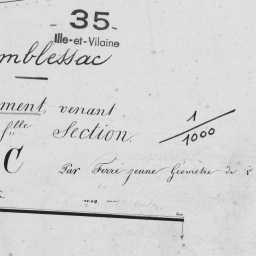 - 35 -
Ille-et-Vilaine
mblessac
ment, venant
f.lle Section. 1/1000
C
Par Ferré jeune Géomètre de